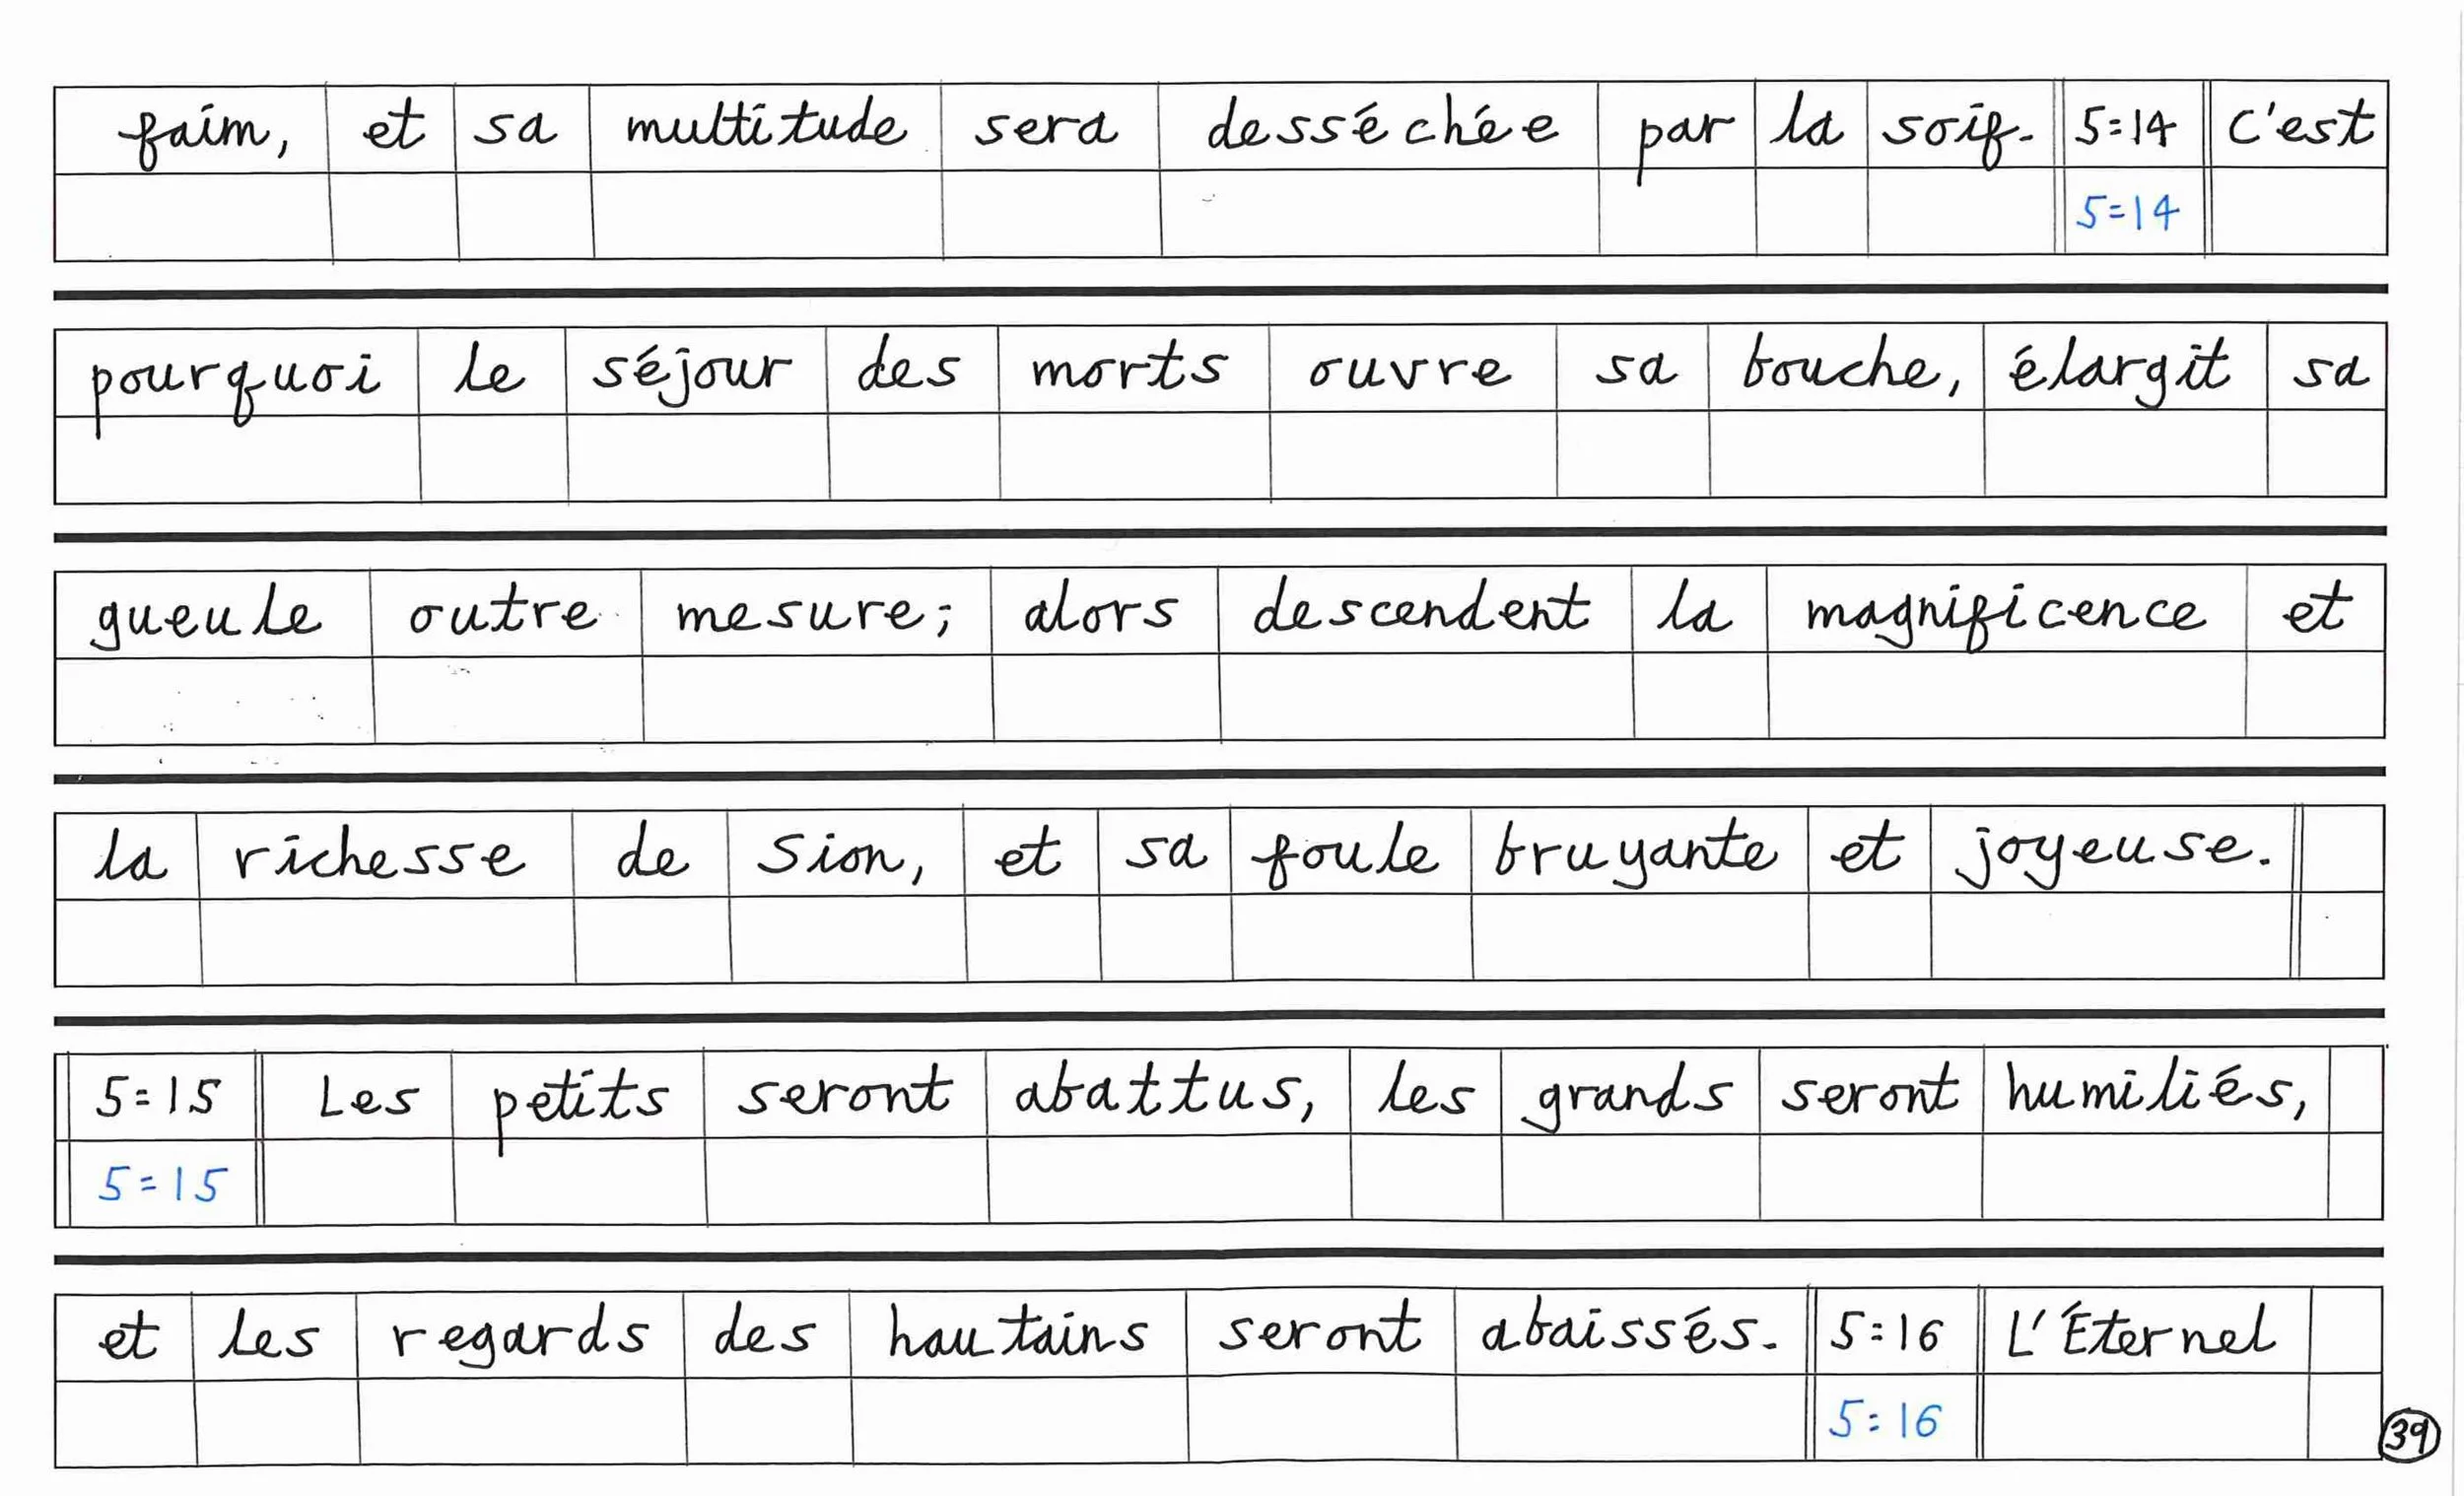 faim, et sa multitude sera desséchée par la soif. 5:14 C'est
5:14
pourquoi le séjour des morts ouvre sa bouche, élargit sa
gueule outre mesure; alors descendent la magnificence et
la richesse de Sion, et sa foule bruyante et joyeuse.
5:15 Les petits seront abattus, les grands seront humiliés,
5:15
et les regards des hautains seront abaissés. 5:16 L'Éternel
5:16
39